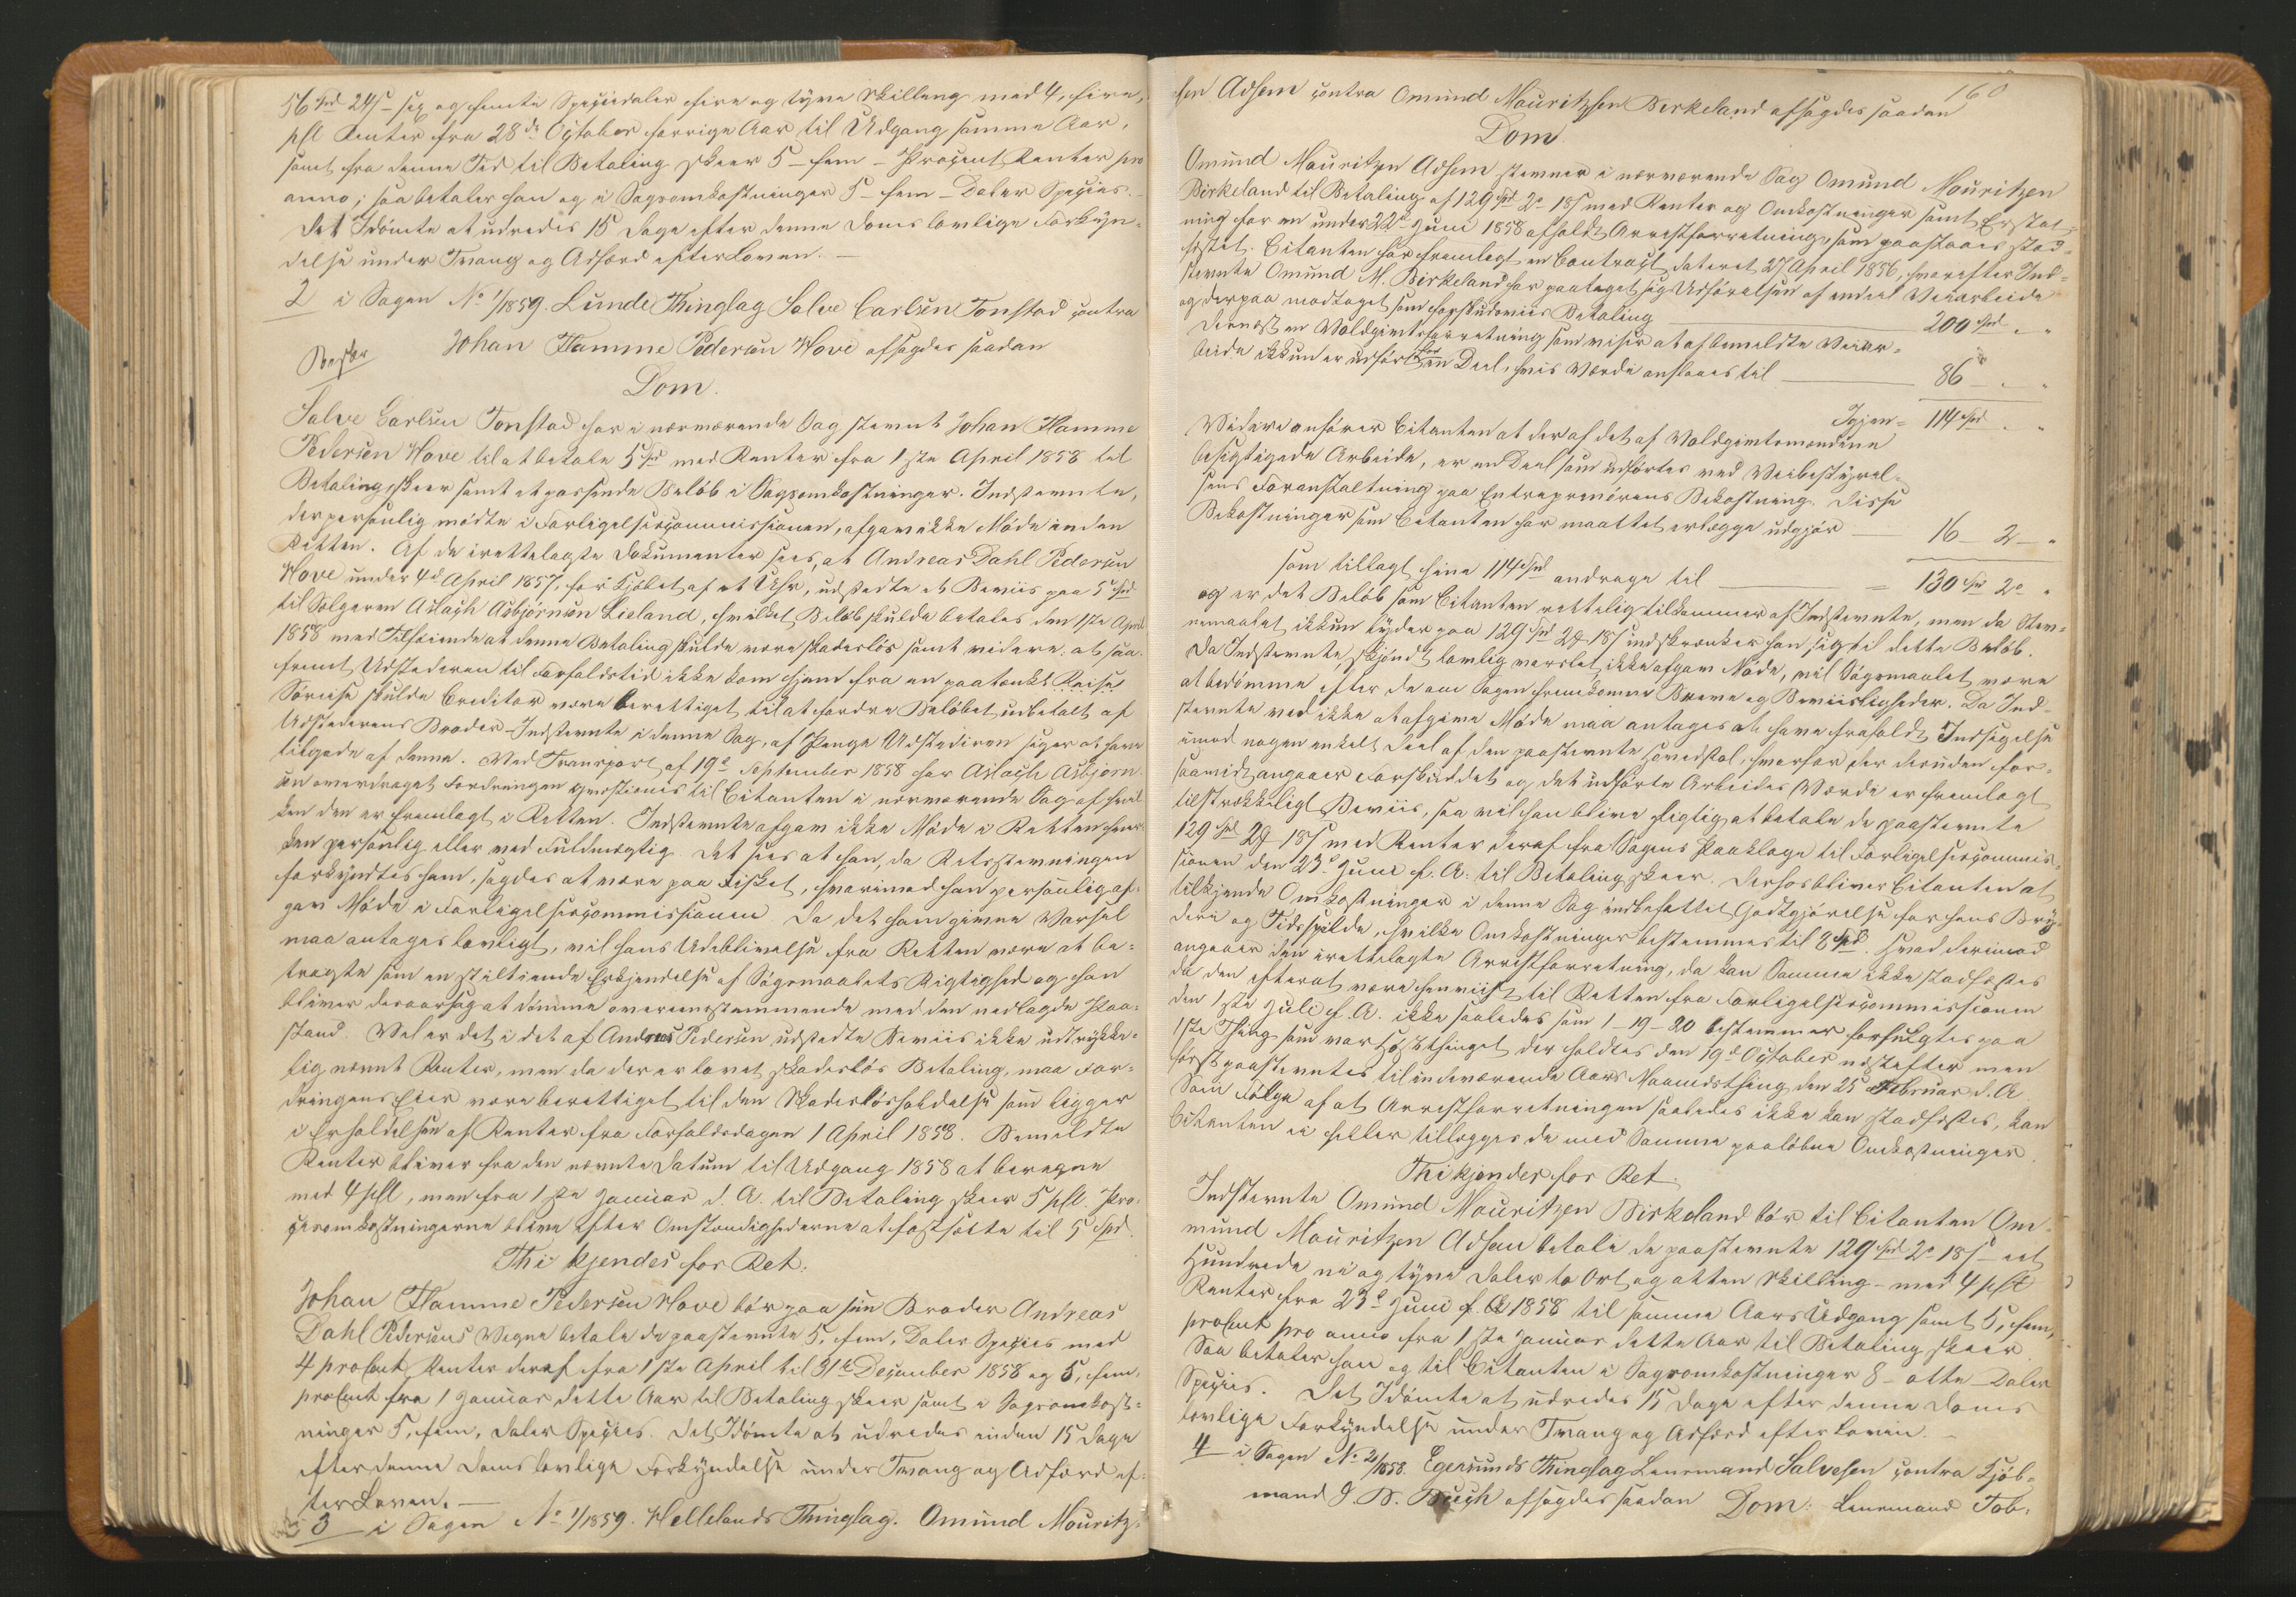 56 Spd 24 s – sex og femti Speciedaler fire og tyve Skilling med 4, fire,
pCt Renter fra 28de October forrige Aar til Udgang samme Aar,
samt fra denne Tid til Betaling skeer 5 – fem – Procent Renter pro
anno; saa betaler han og i Sagsomkostninger 5 – fem – Daler Species. –
Det Idømte at udredes 15 Dage efter denne Doms lovlige Forkyn-
delse under Tvang og Adfærd efter Loven. –
2 i Sagen No 1/1859. Lunde Thinglag Salve Carlsen Tonstad contra
Johan Hamme Pedersen Hove afsagdes saadan
Dom.
Salve Carlsen Tonstad har i nærværende Sag stevnt Johan Hamme
Pedersen Hove til at betale 5 Spd med Renter fra 1ste April 1858 til
Betaling skeer samt et passende Beløb i Sagsomkostninger. Indstevnte,
der personlig mødte i Forligelsescommissionen, afgav ikke Møde inden
Retten. Af de irettelagte Dokumenter sees, at Andreas Dahl Pedersen
Hove under 4d April 1857, for Kjøbet af et Uhr, udstedte et Beviis paa 5 Spd
til Sælgeren Aslach Asbjørnsen Lieland, hvilket Beløb skulde betales den 1ste April
1858 med Tilføiende at denne Betaling skulde være skadesløs samt videre: at saa-
fremt Udstederen til Forfaldstid ikke kom hjem fra en paatænkt Reise
Søreise skulde Creditor være berettiget til at fordre Beløbet udbetalt af
Udstederens Broder – Indstevnte i denne Sag, af Penge Udstederen siger at have
tilgode af denne. Med Transport af 19d September 1858 har Aslach Asbjørn-
sen overdraget Fordringen qvæstionis til Citanten i nærværende Sag af hvil-
ken den er fremlagt i Retten. Indstevnte afgav ikke Møde i Retten hver-
ken personlig eller ved Fuldmægtig. Det sees at han, da Retsstevningen
forkyndtes ham, sagdes at være paa Fisket, hvorimod han personlig af-
gav Møde i Forligelsescommissionen. Da det ham givne Varsel
maa antages lovligt, vil hans Udeblivelse fra Retten være at be-
tragte som en stiltiende Erkjendelse af Søgsmaalets Rigtighed og han
bliver deraarsag at dømme overeensstemmende med den nedlagde Paa-
stand. Vel er det i det af Andreas Pedersen udstedte Beviis ikke udtrykke-
lig nævnt Renter, men da der er lovet skadesløs Betaling, maa For-
dringens Eier være berettiget til den Skadesløsholdelse som ligger
i Erholdelsen af Renter fra Forfaldsdagen 1 April 1858. Bemeldte
Renter bliver fra den nævnte Datum til Udgang 1858 at beregne
med 4 pCt, men fra 1ste Januar d. A. til Betaling skeer 5 pCt. Pro-
cesomkostningerne blive efter Omstændighederne at fastsætte til 5 Spd.
Thi kjendes for Ret:
Johan Hamme Pedersen Hove bør paa sin Broder Andreas
Dahl Pedersens Vegne betale de paastevnte 5, fem, Daler Species med
4 proCent Renter deraf fra 1ste April til 31te December 1858 og 5, fem,
proCent fra 1 Januar dette Aar til Betaling skeer samt i Sagsomkost-
ninger 5, fem, Daler Species. Det Idømte at udredes inden 15 Dage
efter denne Doms lovlige Forkyndelse under Tvang og Adfærd ef-
ter Loven. –
3 i Sagen No 1/1859. Hellelands Thinglag. Omund Mouritz-
160
sen Adsem contra Omund Mouritzsen Birkeland afsagdes saadan
Dom.
Omund Mouritzen Adsem stevner i nærværende Sag Omund Mouritzen
Birkeland til Betaling af 129 Spd 2o 18 s med Renter og Omkostninger samt Erstat-
ning for en under 22d Juni 1858 afholdt Arrestforretning, som paastaaes stad-
fæstet. Citanten har fremlagt en Contract dateret 27 April 1856, hvorefter Ind-
stevnte Omund M. Birkeland har paataget sig Udførelsen af endeel Veiarbeide
og derpaa modtaget som forskudsviis Betaling 200 Spd „ „
Dernæst en Voldgivtsforretning som viser at af bemeldte Veiar-
beide ikkun er udført en Deel, hvis Værdi ansloges til 86 – „ „
Igjen = 114 Spd „ „
Videre anfører Citanten at der af det af Voldgivtsmændene
besigtigede Arbeide, er en Deel som udførtes ved Veibestyrel-
sens Foranstaltning paa Entreprenørens Bekostning. Disse
Bekostninger som Citanten har maattet erlægge udgjør 16 – 2 – „
som tillagt hine 114 Spd andrage til = 130 Spd 2o „
og er det Beløb som Citanten rettelig tilkommer af Indstevnte, men da Stev-
nemaalet ikkun lyder paa 129 Spd 2o 18 s indskrænker han sig til dette Beløb.
Da Indstevnte, skjøndt lovlig varslet, ikke afgav Møde, vil Søgsmaalet være
at bedømme efter de om Sagen fremkomne Breve og Beviisligheder. Da Ind-
stevnte ved ikke at afgive Møde maa antages at have frafaldt Indsigelse
imod nogen enkelt Deel af den paastevnte Hovedstol, hvorfor der desuden for-
saavidt angaaer Forskuddet og det udførte Arbeides Værdi er fremlagt
tilstrækkeligt Beviis, saa vil han blive pligtig at betale de paastevnte
129 Spd 2o 18 s med Renter deraf fra Sagens Paaklage til Forligelsescommis-
sionen den 23d Juni f. A. til Betaling skeer. Derhos bliver Citanten at
tilkjende Omkostninger i denne Sag indbefattet Godtgjørelse for hans Bry-
deri og Tidsspilde, hvilke Omkostninger bestemmes til 8 Spd. Hvad derimod
angaaer den irettelagte Arrestforretning, da kan Samme ikke stadfæstes
da den efterat være henviist til Retten fra Forligelsescommissionen
den 1ste Juli f. A. ikke saaledes som 1–19–20 bestemmer forfulgtes paa
1ste Thing som var Høstthinget der holdtes den 19d October næstefter men
først paastevntes til indeværende Aars Maanedsthing den 25 Februar d. A.
Som Følge af at Arrestforretningen saaledes ikke kan stadfæstes, kan
Citanten ei heller tillægges de med Samme paaløbne Omkostninger.
Thi kjendes for Ret
Indstevnte Omund Mouritzen Birkeland bør til Citanten Om-
mund Mouritzen Adsem betale de paastevnte 129 Spd 2o 18 s – eet
Hundrede ni og tyve Daler to Ort og atten Skilling – med 4 pCt
Renter fra 23d Juni f. A 1858 til samme Aars Udgang samt 5, fem,
proCent pro anno fra 1ste Januar dette Aar til Betaling skeer.
Saa betaler han og til Citanten i Sagsomkostninger 8 – otte – Daler
Species. Det Idømte at udredes 15 Dage efter denne Doms
lovlige Forkyndelse under Tvang og Adfærd efter Loven. –
4 i Sagen No 2/1858. Egersunds Thinglag Lensmand Salvesen contra Kjøb-
mand J. B. afsagdes saadan Dom: Lensmand Tob.